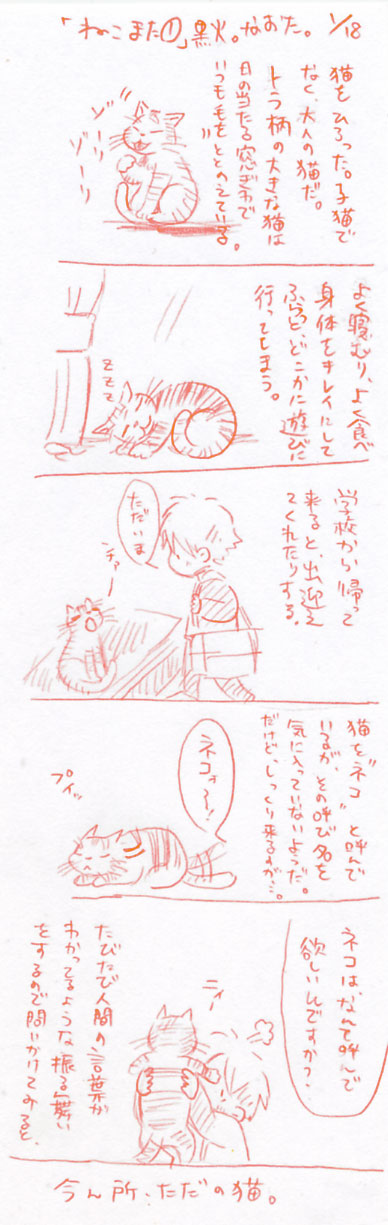 「ねこまた①」黒火。なおた。 1/18
猫をひろった。子猫で
なく、大人の猫だ。
トラ柄の大きな猫は
日の当たる窓ぎわで
いつも毛をととのえている。
ゾ
ゾ
ゾーリ
よく寝むり、よく食べ
身体をキレイにして
ふらっと、どこかに遊びに
行ってしまう。
zzz
学校から帰って
来ると、出迎え
てくれたりする。
ただいま
ナァー
猫を〝ネコ〟と呼んで
いるが、その呼び名を
気に入っていないようだ。
だけど、しっくり来るすが…。
ネコォ〜!
プイッ
ネコはなんて呼んで
欲しいんですか?
ニィー
たびたび人間の言葉が
わかってるような振る舞い
をするので問いかけてみると、
今ん所、ただの猫。